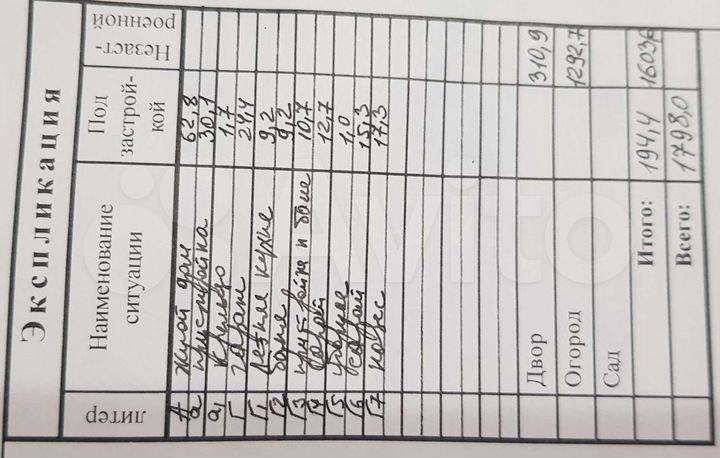 Экспликация
литер Наименование ситуации Под застрой-кой Незаст-роенной
А жилой дом 62,8
а пристройка 30,1
а1 крыльцо 1,7
Г гараж 24,4
Г1 летняя кухня 9,2
Г2 баня 9,2
Г3 прис-ройка к бане 10,7
Г4 сарай 12,7
Г5 уборная 1,0
Г6 сарай 15,3
Г7 навес 17,3
Двор 310,9
Огород 1292,7
Сад
Итого: 194,4 1603,6
Всего: 1798,0
Avito